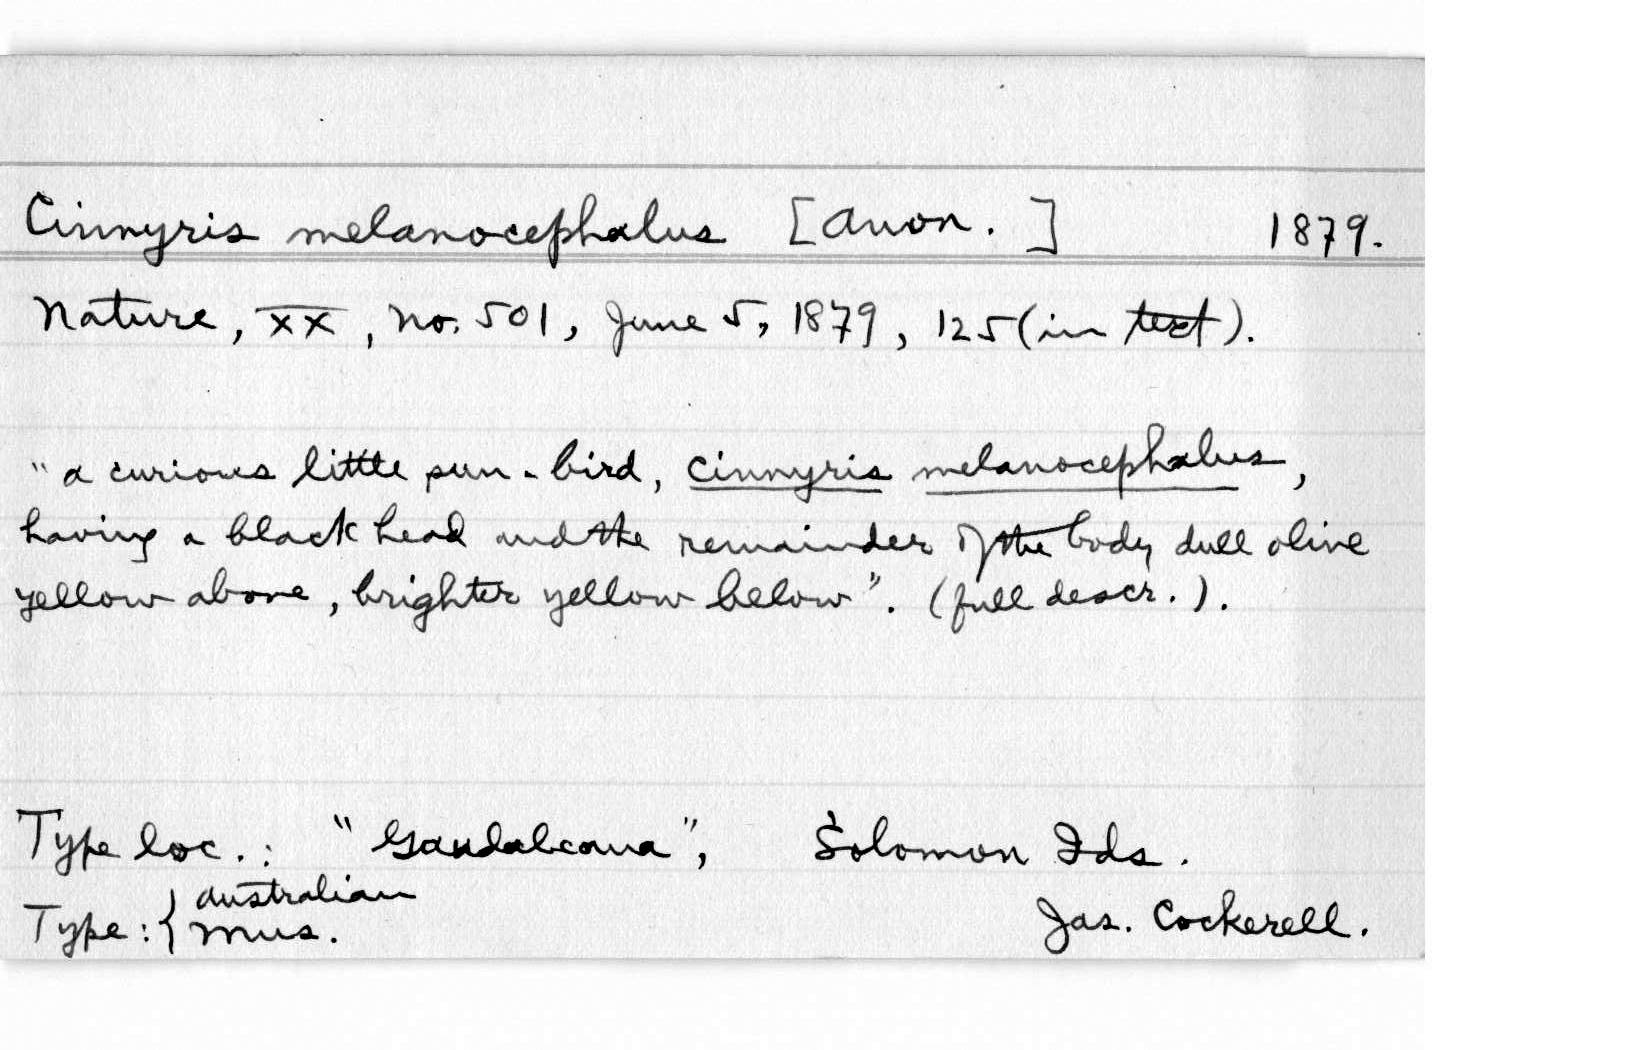 Cinnyris melanocephalus [Anon.] 1879.
Nature, XX, no. 501, June 5, 1879, 125 (in text).
"a curious little sun-bird, Cinnyris melanocephalus,
having a black head and the remainder of the body dull olive
yellow above, brighter yellow below". (full descr.).
Type loc.: "Gaudalcana", Solomon Ids.
Type: { Australian
Mus. Jas. Cockerell.